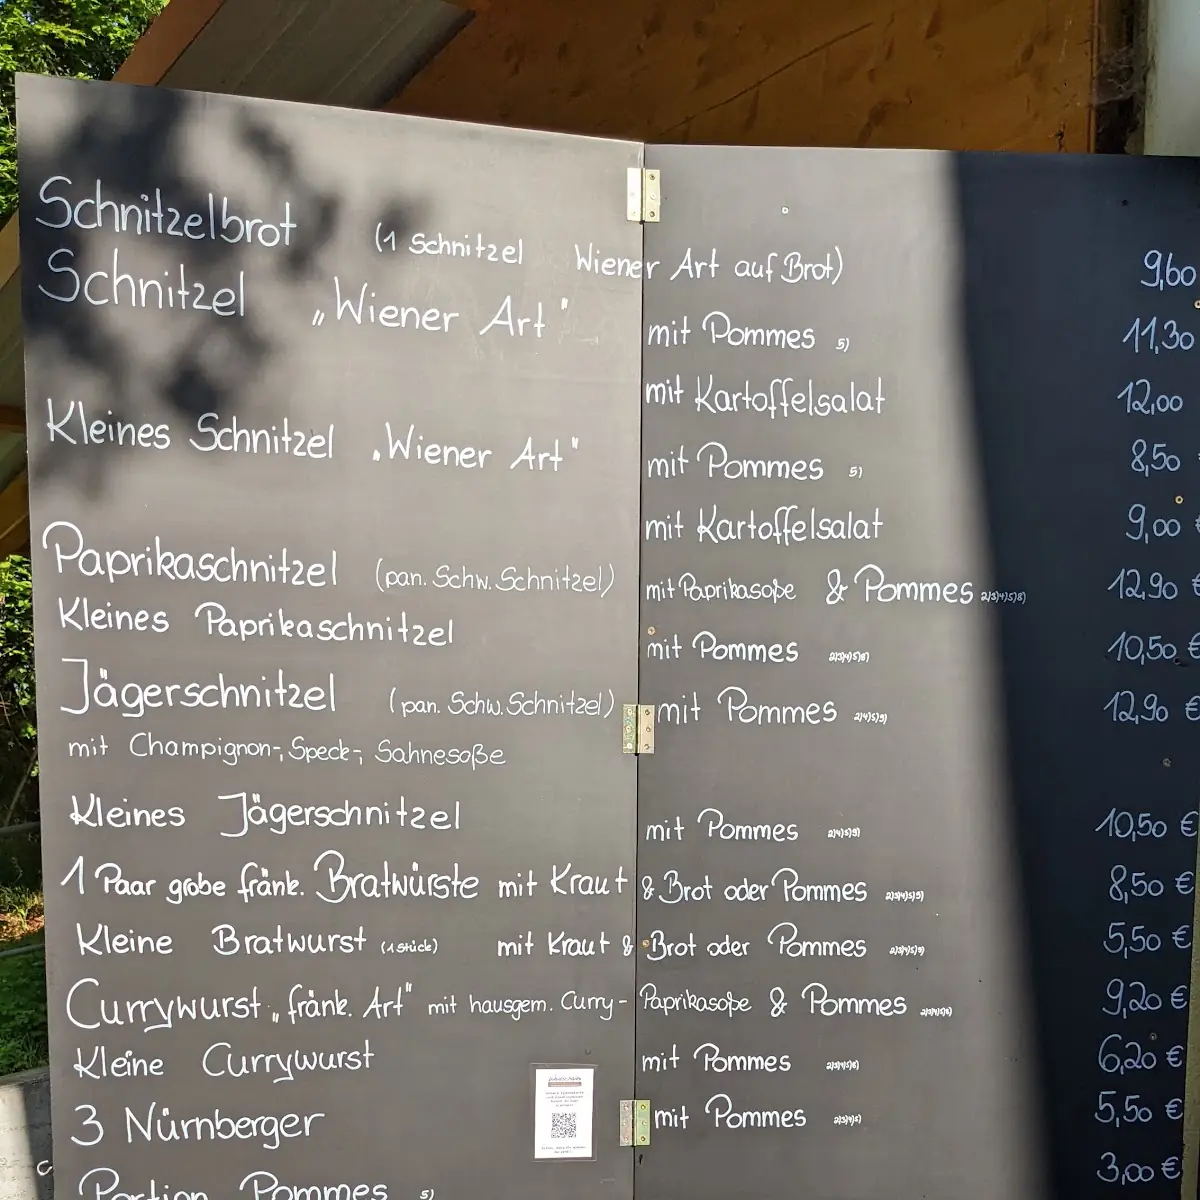 Schnitzelbrot (1 Schnitzel Wiener Art auf Brot) 9,60
Schnitzel „Wiener Art" mit Pommes 5) 11,30
mit Kartoffelsalat 12,00
Kleines Schnitzel „Wiener Art" mit Pommes 5) 8,50
mit Kartoffelsalat 9,00 €
Paprikaschnitzel (pan. Schw. Schnitzel) mit Paprikasoße & Pommes 12,90 €
Kleines Paprikaschnitzel mit Pommes 10,50 €
Jägerschnitzel (pan. Schw. Schnitzel) mit Pommes 2)4)5)9) 12,90 €
mit Champignon-, Speck-, Sahnesoße
Kleines Jägerschnitzel mit Pommes 2)4)5)9) 10,50 €
1 Paar grobe fränk. Bratwürste mit Kraut & Brot oder Pommes 8,50 €
Kleine Bratwurst (1 Stück) mit Kraut & Brot oder Pommes 5,50 €
Currywurst „fränk. Art" mit hausgem. Curry- Paprikasoße & Pommes 9,20 €
Kleine Currywurst mit Pommes 6,20 €
3 Nürnberger mit Pommes 5,50 €
Portion Pommes 5) 3,00 €